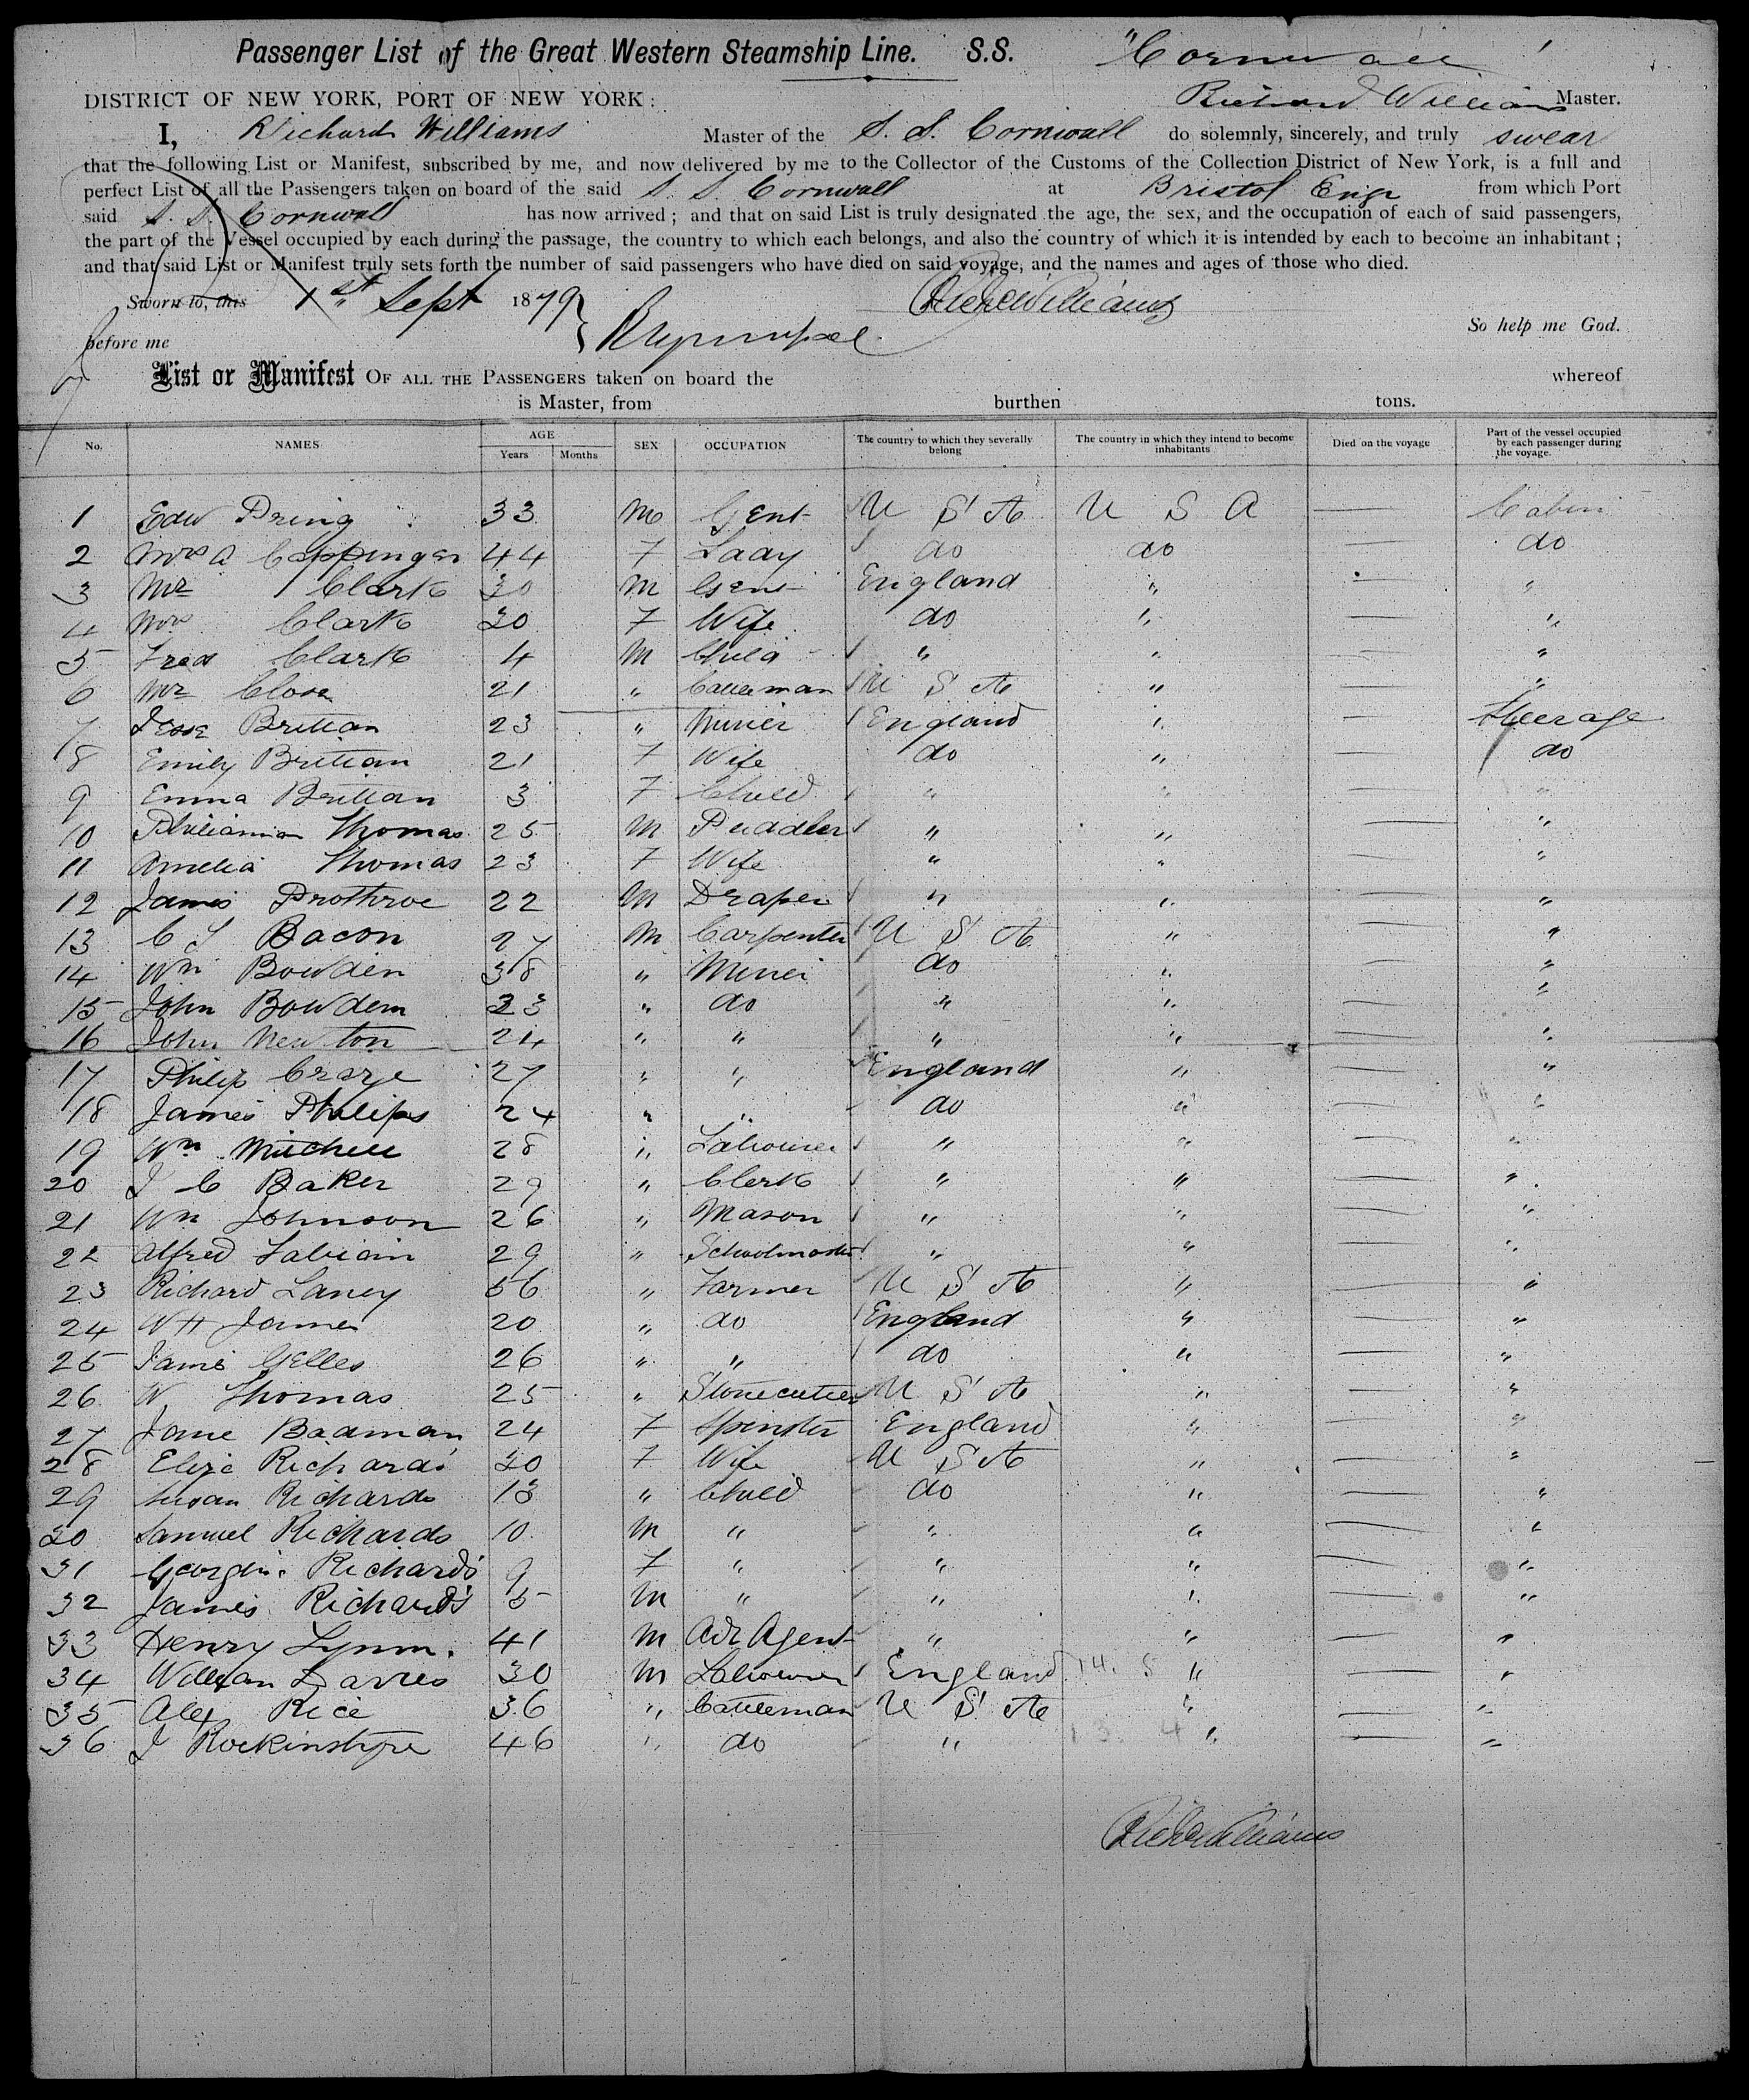 Passenger List of the Great Western Steamship Line. S.S. "Cornwall"
DISTRICT OF NEW YORK, PORT OF NEW YORK: Richard Williams Master.
I, Richard Williams Master of the S. S. Cornwall do solemnly, sincerely, and truly swear
that the following List or Manifest, subscribed by me, and now delivered by me to the Collector of the Customs of the Collection District of New York, is a full and
perfect List of all the Passengers taken on board of the said S. S. Cornwall at Bristol Engr from which Port
said S. S. Cornwall has now arrived; and that on said List is truly designated the age, the sex, and the occupation of each of said passengers,
the part of the Vessel occupied by each during the passage, the country to which each belongs, and also the country of which it is intended by each to become an inhabitant;
and that said List or Manifest truly sets forth the number of said passengers who have died on said voyage, and the names and ages of those who died.
Sworn to, this 1st Sept 1879 Richd Williams
before me So help me God.
List or Manifest OF ALL THE PASSENGERS taken on board the whereof
is Master, from burthen tons.
No. NAMES AGE Years Months SEX OCCUPATION The country to which they severally belong The country in which they intend to become inhabitants Died on the voyage Part of the vessel occupied by each passenger during the voyage.
1 Edw Pring 33 M Gent U S A U S A — Cabin
2 Mrs A Coppinger 44 F Lady do do — do
3 Mr Clark 30 M Gent England " — "
4 Mrs Clark 30 F Wife do " — "
5 Fred Clark 4 M Child " " — "
6 Mr Close 21 " Cattleman U S A " — "
7 Jesse Brittan 23 " Miner England " — Steerage
8 Emily Brittan 21 F Wife do " — do
9 Emma Brittan 3 F Child " " — "
10 Thomas 25 M Puddler " " — "
11 Amelia Thomas 23 F Wife " " — "
12 James Prothroe 22 M Draper " " — "
13 C S Bacon 27 M Carpenter U S A " — "
14 Wm Bowden 38 " Miner do " — "
15 John Bowdem 23 " do " " — "
16 John Newton 24 " " " " — "
17 Philip Craze 27 " " England " — "
18 James Philips 24 " " do " — "
19 Wm Michell 28 " Labourer " " — "
20 J C Baker 29 " Clerk " " — "
21 Wm Johnson 26 " Mason " " — "
22 Alfred Fabian 29 " Schoolmaster " " — "
23 Richard Laney 56 " Farmer U S A " — "
24 W H James 20 " do England " — "
25 James Gelles 26 " " do " — "
26 W Thomas 25 " Stonecutter U S A " — "
27 Jane Badman 24 F Spinster England " — "
28 Eliza Richards 30 F Wife U S A " — "
29 Susan Richards 13 " Child do " — "
30 Samuel Richards 10 M " " " — "
31 Georgin. Richards 9 F " " " — "
32 James Richards 5 M " " " — "
33 Henry Lynn. 41 M Adv Agent " " — "
34 William Davies 30 M Labourer England 14. 5 " — "
35 Alex Rice 36 " Cattleman U S A " — "
36 J Rockinstyre 46 " do " 13. 4 " — "
Richd Williams